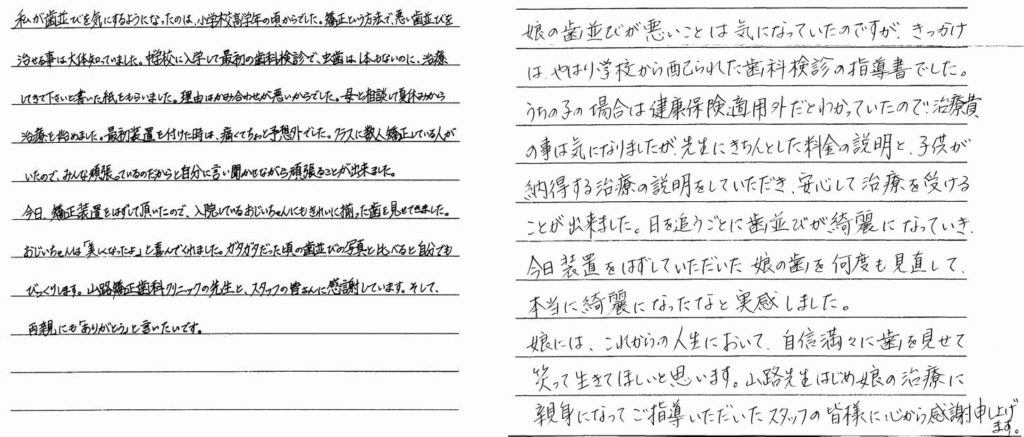 私が歯並びを気にするようになったのは、小学校高学年の頃からでした。矯正という方法で、悪い歯並びを
治せる事は大体知っていました。中学校に入学して最初の歯科検診で、虫歯は1本もないのに、治療
してきて下さいと書いた紙をもらいました。理由はかみ合わせが悪いからでした。母と相談して夏休みから
治療を始めました。最初装置を付けた時は、痛くてちょっと予想外でした。クラスに数人矯正している人が
いたので、みんな頑張っているのだからと自分に言い聞かせながら頑張ることが出来ました。
今日、矯正装置をはずして頂いたので、入院しているおじいちゃんにもきれいに揃った歯を見せてきました。
おじいちゃんは「美しくなったよ」と喜んでくれました。ガタガタだった頃の歯並びの写真と比べると自分でも
びっくりします。山路矯正歯科クリニックの先生と、スタッフの皆さんに感謝しています。そして、
両親にも「ありがとう」と言いたいです。
娘の歯並びが悪いことは気になっていたのですが、きっかけ
は、やはり学校から配られた歯科検診の指導書でした。
うちの子の場合は健康保険適用外だとわかっていたので治療費
の事は気になりましたが、先生にきちんとした料金の説明と、子供が
納得する治療の説明をしていただき、安心して治療を受ける
ことが出来ました。日を追うごとに歯並びが綺麗になっていき、
今日装置をはずしていただいた娘の歯を何度も見直して、
本当に綺麗になったなと実感しました。
娘には、これからの人生において、自信満々に歯を見せて
笑って生きてほしいと思います。山路先生はじめ娘の治療に
親身になってご指導いただいたスタッフの皆様に心から感謝申し上げ
ます。